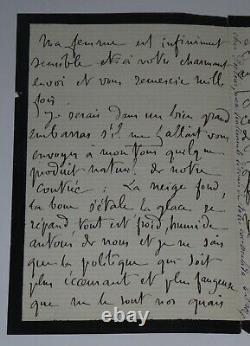 Ma femme est infiniment
sensible et à votre charmant
envoi et vous remercie mille
fois.
Je serais dans un bien grand
embarras s'il me fallait vous
envoyer à mon tour quelque
produit naturel de notre
contrée : La neige fond,
la boue s'étale la glace se
répand tout est froid, humide
autour de nous et je ne sais
que la politique qui soit
plus écœurant et plus fangeuse
que ne le sont nos quais